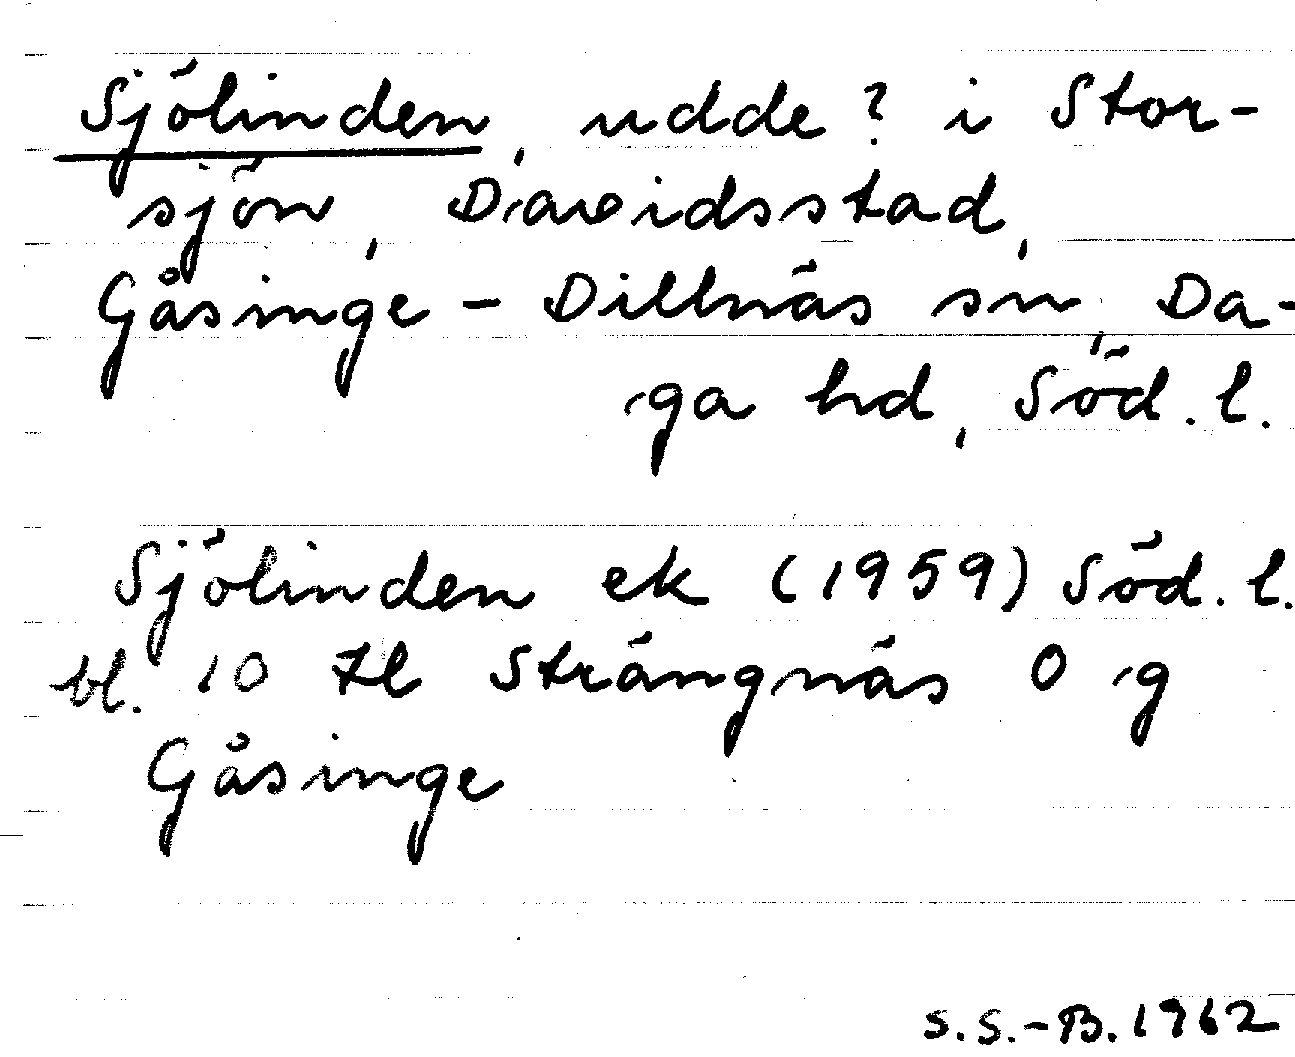 Sjölinden, udde? i Stor-
sjön, Davidsstad,
Gåsinge - Dillnäs sn, Da-
ga hd, Söd. l.
Sjölinden ek (1959) Söd. l.
bl. 10 Strängnäs O g
Gåsinge
S.S.-B. 1962